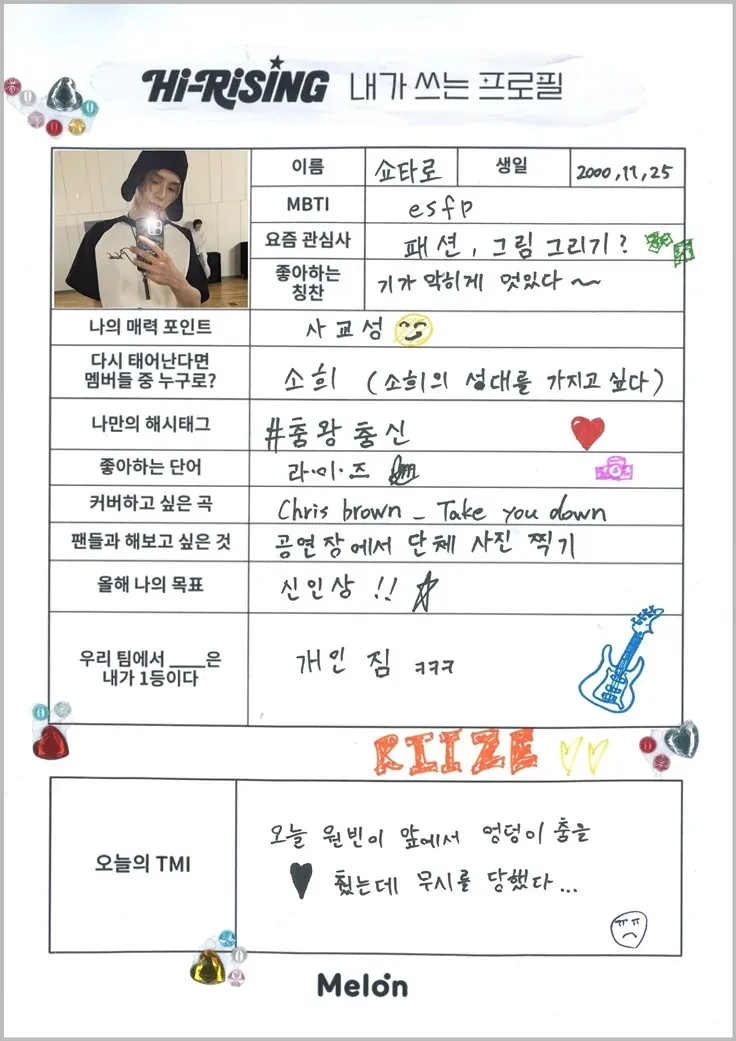 Hi-RiSiNG 내가 쓰는 프로필
이름 쇼타로 생일 2000,11,25
MBTI esfp
요즘 관심사 패션, 그림 그리기?
좋아하는 칭찬 기가 막히게 멋있다~
나의 매력 포인트 사교성
다시 태어난다면
멤버들 중 누구로? 소희 (소희의 성대를 가지고 싶다)
나만의 해시태그 #춤왕춤신
좋아하는 단어 라·이·즈
커버하고 싶은 곡 Chris brown - Take you down
팬들과 해보고 싶은 것 공연장에서 단체 사진 찍기
올해 나의 목표 신인상 !!
우리 팀에서 ____은
내가 1등이다 개인 짐 ㅋㅋㅋ
RIIZE
오늘의 TMI
오늘 원빈이 앞에서 엉덩이 춤을
췄는데 무시를 당했다...
ㅠㅠ
Melon